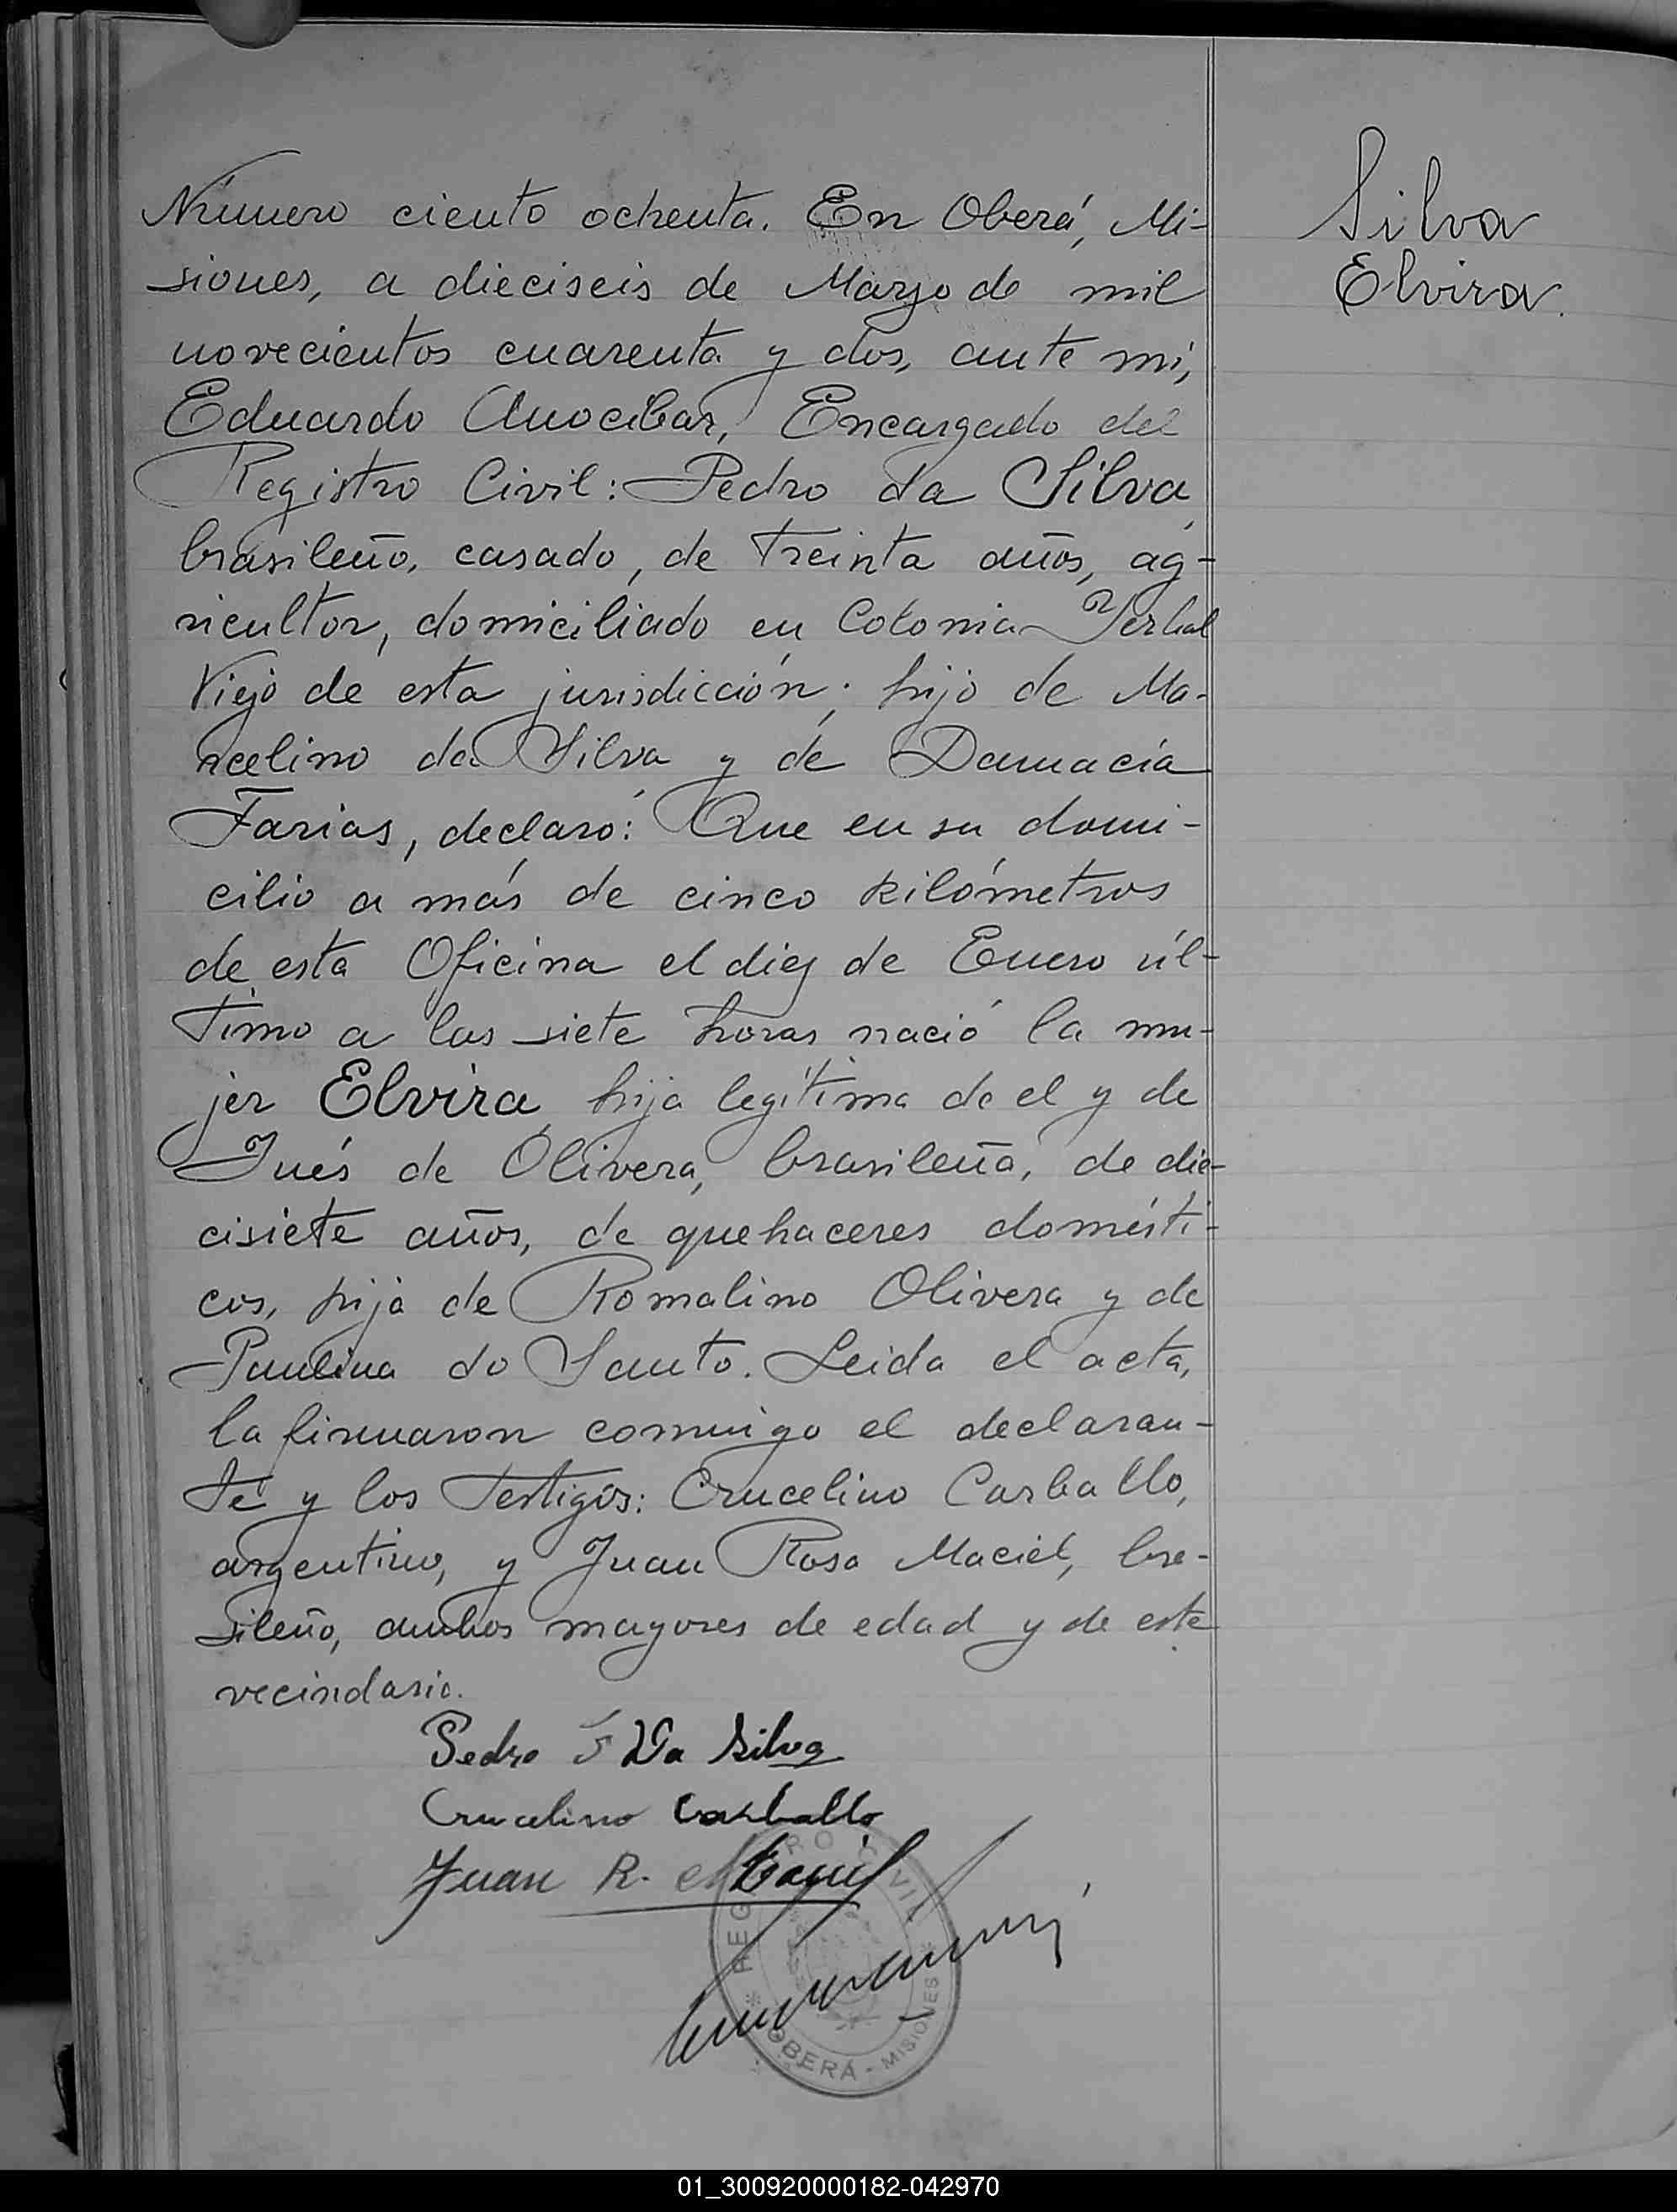 Número ciento ochenta. En Oberá, Mi-
siones, a dieciseis de Marzo de mil
novecientos cuarenta y dos, ante mi,
Eduardo Anocibar, Encargado del
Registro Civil: Pedro da Silva,
brasileño, casado, de treinta años, ag-
ricultor, domiciliado en Colonia Yerbal
Viejo de esta jurisdicción; hijo de Ma-
rcelino da Silva y de Damacia
Farias, declaró: Que en su domi-
cilio a más de cinco kilómetros
de esta Oficina el diez de Enero úl-
timo a las siete horas nació la mu-
jer Elvira, hija legítima de el y de
Inés de Olivera, brasileña, de die-
cisiete años, de quehaceres domésti-
cos, hija de Romalino Olivera y de
Paulina do Santo. Leida el acta,
la firmaron conmigo el declaran-
te y los testigos: Crucelino Carballo,
argentino, y Juan Rosa Maciel, bra-
sileño, ambos mayores de edad y de este
vecindario.
Silva
Elvira.
Pedro Da Silva
Crucelino Carballo
Juan R. Maciel
REGISTRO CIVIL
OBERÁ - MISIONES
01_300920000182-042970